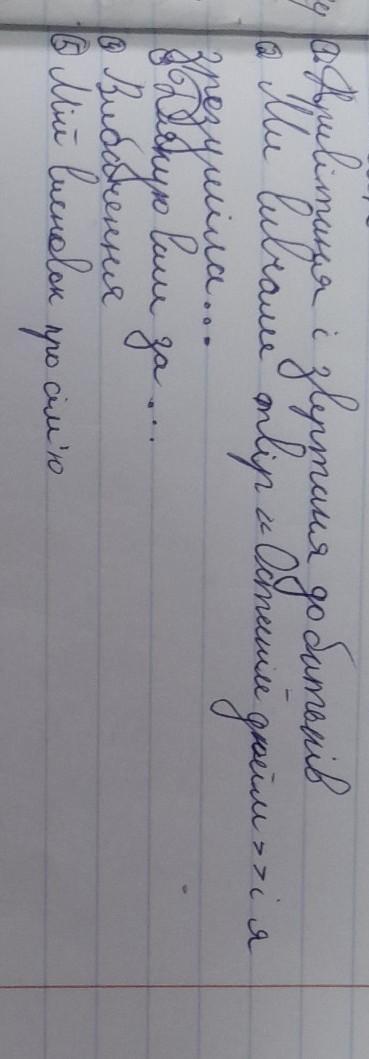 1 Привітання і звертання до батьків
2 Ми вивчали твір «Останній дюйм» і я
зрозуміла...
3 Дякую вам за...
4 Вибачення
5 Мій висновок про сім'ю